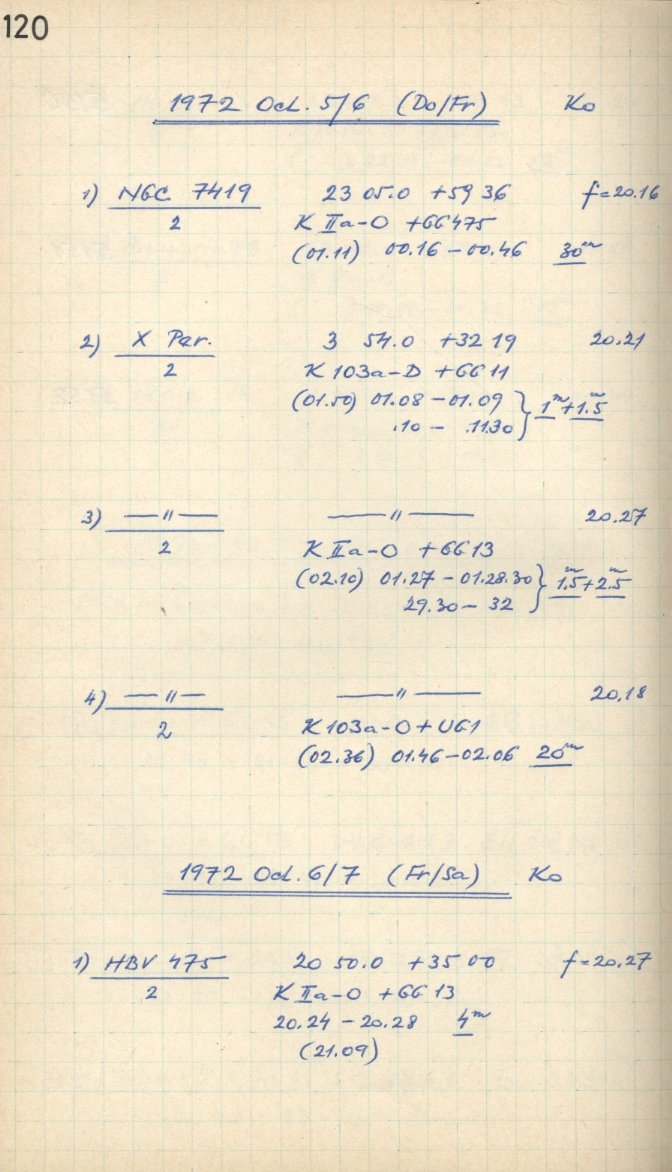 120
1972 Oct. 5/6 (Do/Fr) Ko
1) NGC 7419 23 05.0 +59 36 f=20.16
2 K IIa-O +GG475
(01.11) 00.16 - 00.46 30m
2) X Per. 3 54.0 +32 19 20.21
2 K 103a-D + GG 11
(01.50) 01.08 - 01.09 } 1m + 1.5m
.10 - .1130
3) — " — — " — 20.27
2 K IIa-O + GG 13
(02.10) 01.27 - 01.28.30 } 1.5m + 2.5m
29.30 - 32
4) — " — — " — 20.18
2 K 103a-O + UG1
(02.36) 01.46 - 02.06 20m
1972 Oct. 6/7 (Fr/Sa) Ko
1) HBV 475 20 50.0 +35 00 f=20.27
2 K IIa-O + GG 13
20.24 - 20.28 4m
(21.09)